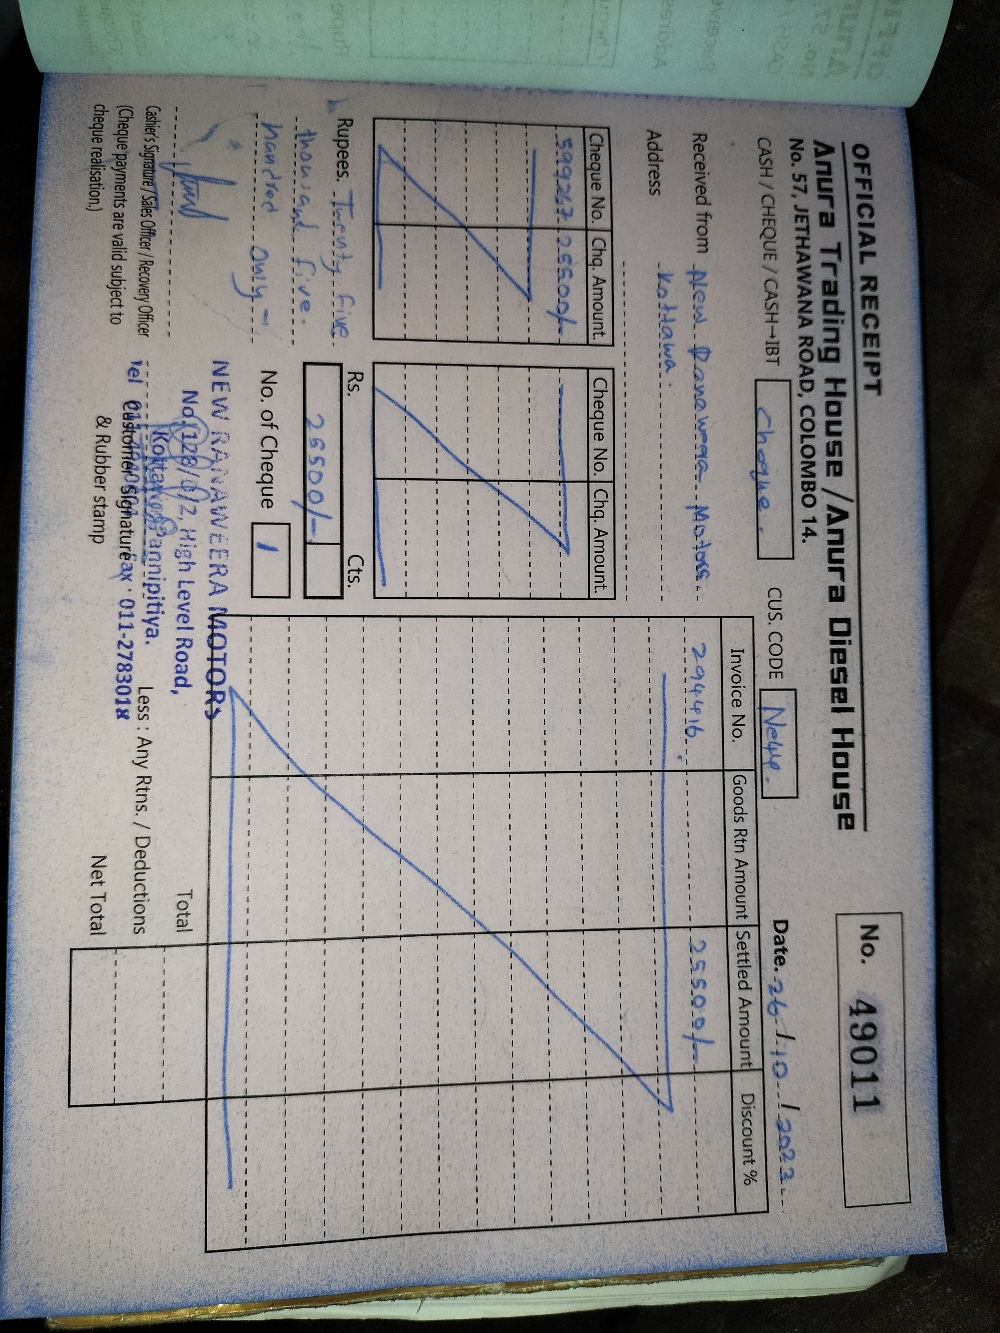 OFFICIAL RECEIPT
No. 49011
Anura Trading House /Anura Diesel House
No. 57, JETHAWANA ROAD, COLOMBO 14.
CASH / CHEQUE / CASH→IBT Cheque.
CUS. CODE Ne44.
Date. 26 / 10 / 2023
Received from New Ranaweera Motors.
Address Kottawa.
Cheque No. Chq. Amount.
599267 25500/-
Cheque No. Chq. Amount.
Invoice No. Goods Rtn Amount Settled Amount Discount %
294416. 25500/-
Rupees. Twenty five
thousand five.
handred only
Rs. Cts.
25500/-
No. of Cheque 1
NEW RANAWEERA MOTORS
No. 128/ /2, High Level Road,
Kottawa, Pannipitiya.
Tel
Fax 011-2783018
Cashier's Signature / Sales Officer / Recovery Officer
(Cheque payments are valid subject to
cheque realisation.)
Customer Signature
& Rubber stamp
Total
Less : Any Rtns. / Deductions
Net Total